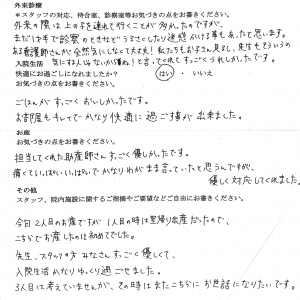 外来診療
＊スタッフの対応、待合室、診察室等お気づきの点をお書きください。
外来の際は上の子を連れて行くことが多かったのですが、
まだ1才半で診察のときなどうるさくしたり迷惑かける事もあったと思います。
ある看護師さんが全然気にしなくて大丈夫!私たちもお子さん見るし、先生もそういうの
気にする人じゃないから構わないよ!と言ってくれてすっごくうれしかったです。
入院生活
快適にお過ごしになれましたか? はい ・ いいえ
お気づきの点をお書きください。
ごはんがすっごくおいしかったです。
お部屋もキレイでかなり快適に過ごす事が出来ました。
お産
お気づきの点をお書きください。
担当してくれた助産師さんすっごく優しかったです。
痛くていっぱいいっぱいでかなりわがまま言っていたと思うんですが、
優しく対応してくれました。
その他
スタッフ、院内施設に関するご指摘やご要望などご自由にお書きください。
今回2人目のお産ですが1人目の時は里帰り出産だったので、
こちらでお産したのは初めてでした。
先生、スタッフの方みなさんすっごく優しくて、
入院生活かなりゆっくり過ごせました。
3人目は考えていませんが、その時はまたこちらにお世話になりたいです。